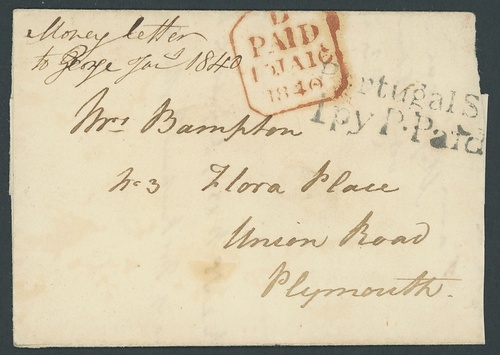 Money letter
to George Jany 1840
PAID
1840
Portugal S
1py P.Paid
Mrs Bampton
No 3 Flora Place
Union Road
Plymouth.